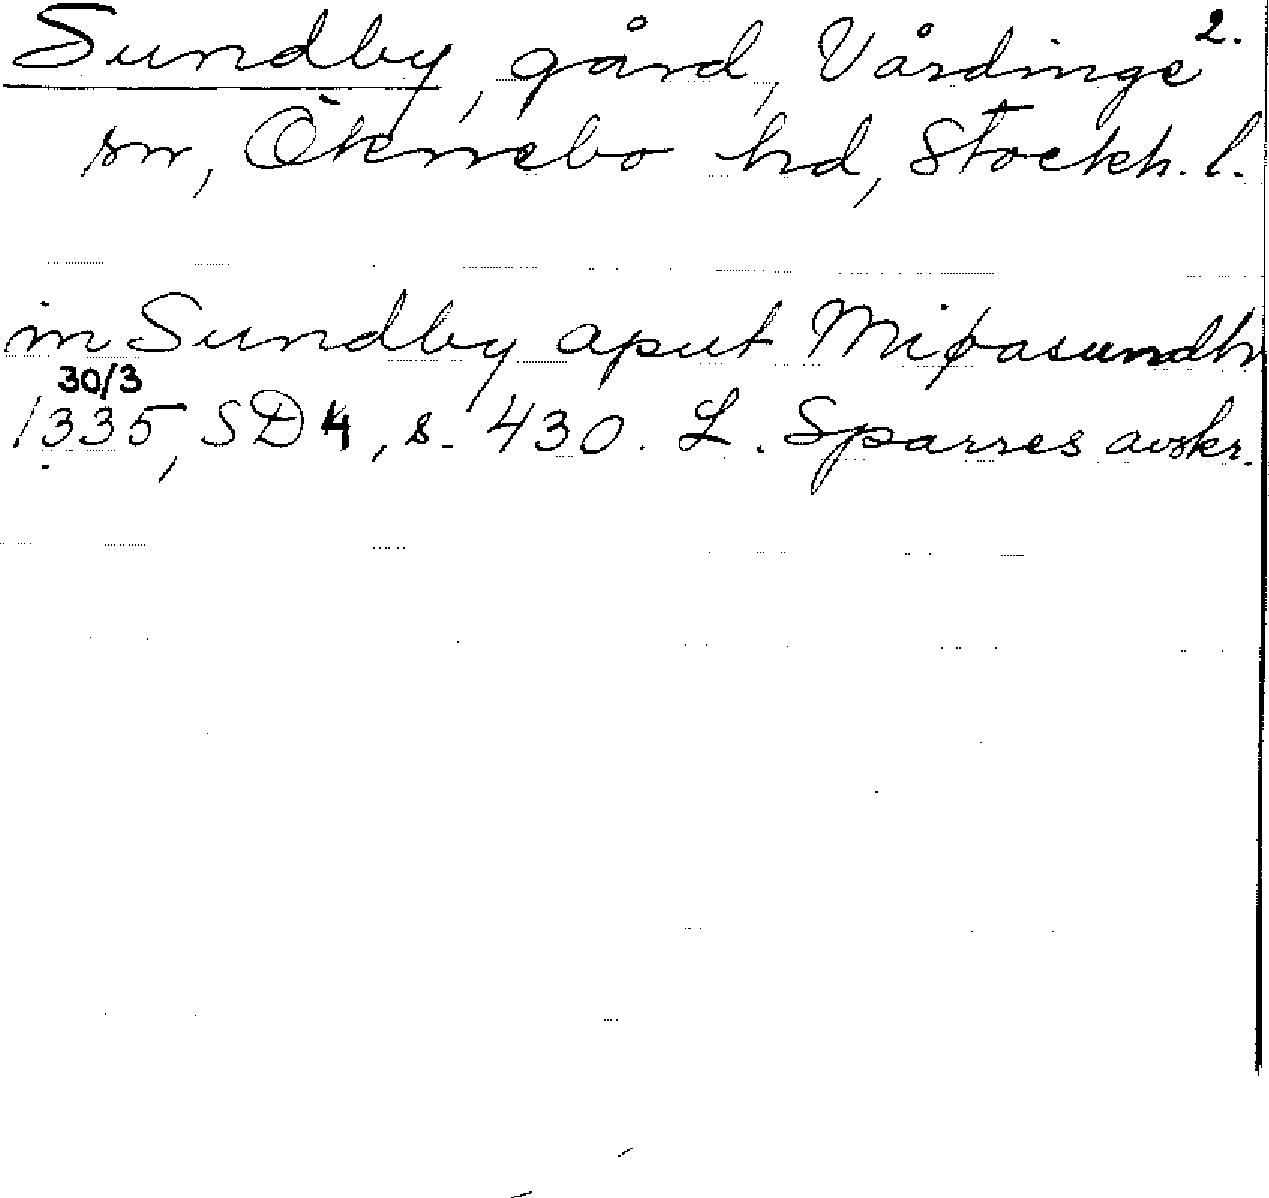 2.
Sundby, gård, Vårdinge
sn, Öknebo hd, Stockh. l.
in Sundby aput Miþasundh
30/3
1335, SD 4, s. 430. L. Sparres avskr.